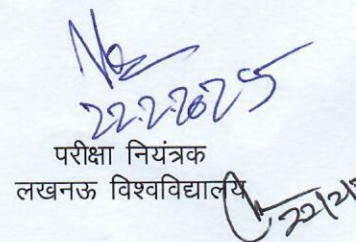 22-2-2025
परीक्षा नियंत्रक
लखनऊ विश्वविद्यालय